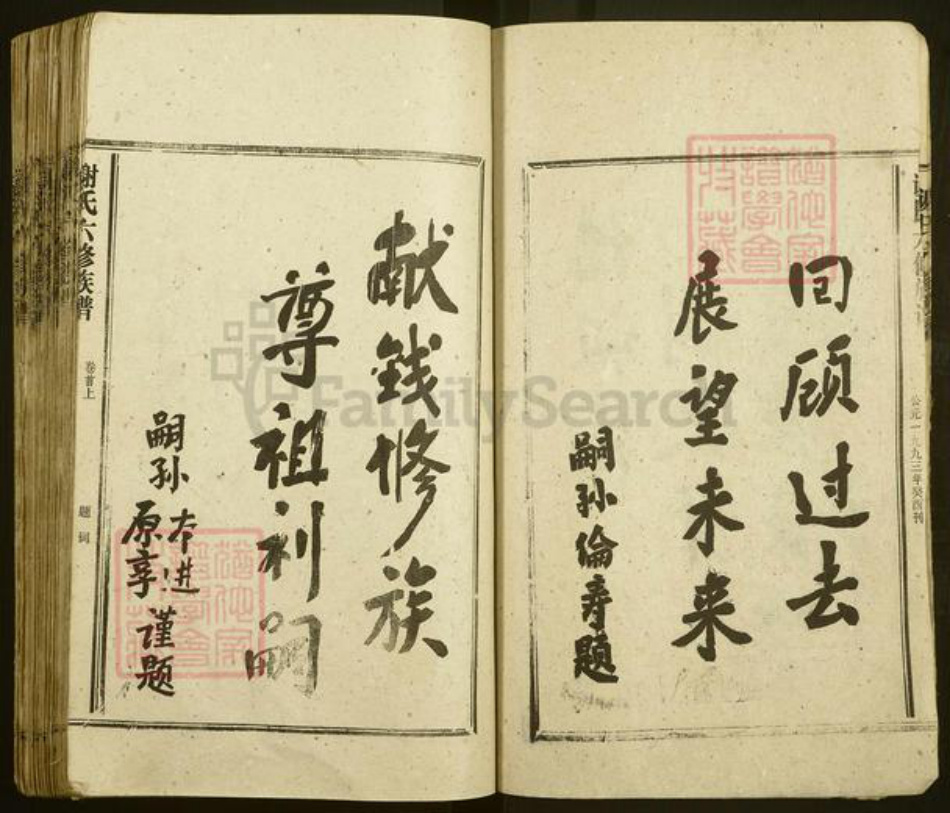 公元一九九三年癸酉刊
回顾过去
展望未来
嗣孙倫寿題
献钱修族
尊祖利嗣
嗣孙
本进
原享
谨题
谢氏六修族谱
卷首上
题词
FamilySearch